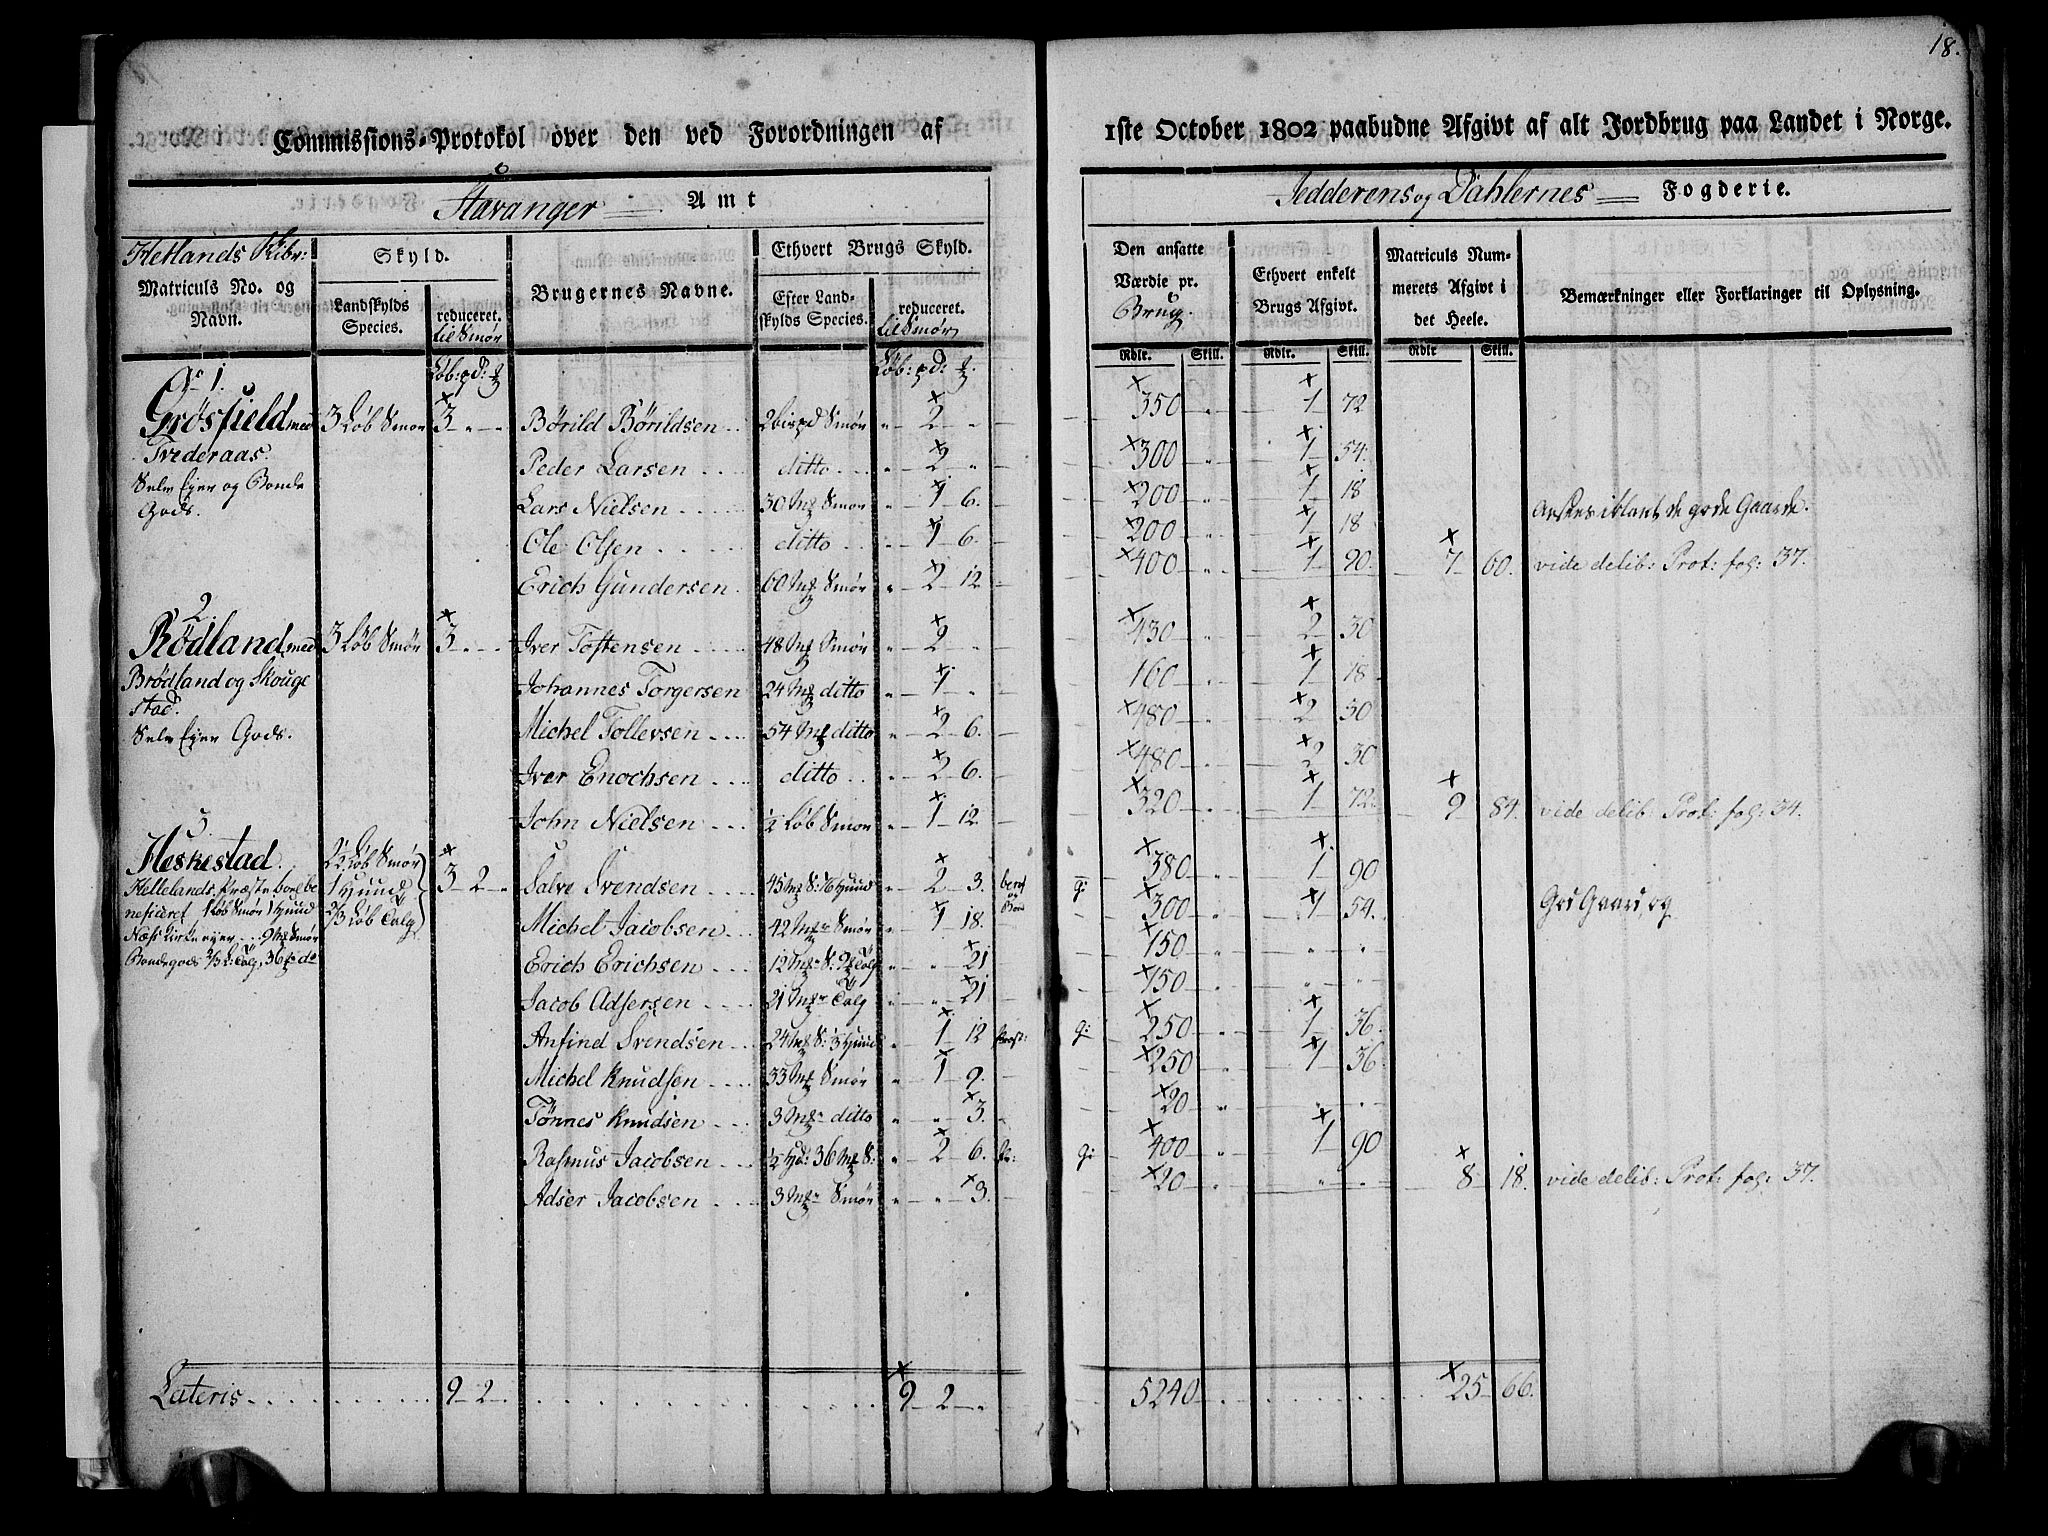 18.
Commissions-Protokol over den ved Forordningen af
1ste October 1802 paabudne Afgivt af alt Jordbrug paa Landet i Norge.
Stavanger Amt
Jedderens og Dahlernes Fogderie.
Hetlands
Matriculs No. og Navn.
Skyld.
Landskylds Species.
reduceret. til Smør
Brugernes Navne.
Ethvert Brugs Skyld.
Efter Landskylds Species.
reduceret. til Smør
Den ansatte Værdie pr. Brug.
Ethvert enkelt Brugs Afgivt.
Matriculs Nummerets Afgivt i det Heele.
Bemærkninger eller Forklaringer til Oplysning.
Rdlr. Skill. Rdlr. Skill. Rdlr Skill.
No 1.
Grøsfield med 3 Løb Smør 3 Børild Børildsen 2 Smør 2 350 1 72
Tvederaas
Selv Ejer og Bonde
Gods.
Peder Larsen ditto 2 300 1 54.
Lars Nielsen 30 Smør 1 6. 200 1 18
Ole Olsen ditto 1 6. 200 1 18
Erich Gundersen 60 Smør 2 12 400 1 90 7 60. vide delib: Prot: fol: 37.
2.
Rødland med 3 Løb Smør 3 Iver Tostensen 48 Smør 2 430 2 30
Brødland og Skouge
stad.
Selv Ejer Gods.
Johannes Torgersen 24 ditto 1 160 1 18
Michel Tollevsen 54 ditto 2 6. 480 2 30
Iver Enochsen ditto 2 6. 480 2 30
John Nielsen ½ Løb Smør 1 12. 320 1 72 9 84. vide delib: Prot: fol: 34.
3.
Heskestad. Løb Smør 3 2 Salve Svendsen 45 2 3. 380 1 90
Hellelands Præstebord be
neficeret 1 Løb Smør 1 Huud
1 Huud
2/3 Løb Talg
Michel Jacobsen 42 Smør 1 18. 300 1 54.
Erich Erichsen 12 21 150
Jacob Adsersen 21 Talg 21 150
Anfind Svendsen 24 1 12 250 1 36.
Michel Knudsen 33 Smør 1 9. 250 1 36
Tønnes Knudsen 3 ditto 3. 20
Rasmus Jacobsen 36 2 6. 400 1 90
Adser Jacobsen 3 Smør 3. 20 8 18. vide delib: Prot: fol: 37.
Lateris 9 2 9 2 5240 25 66.